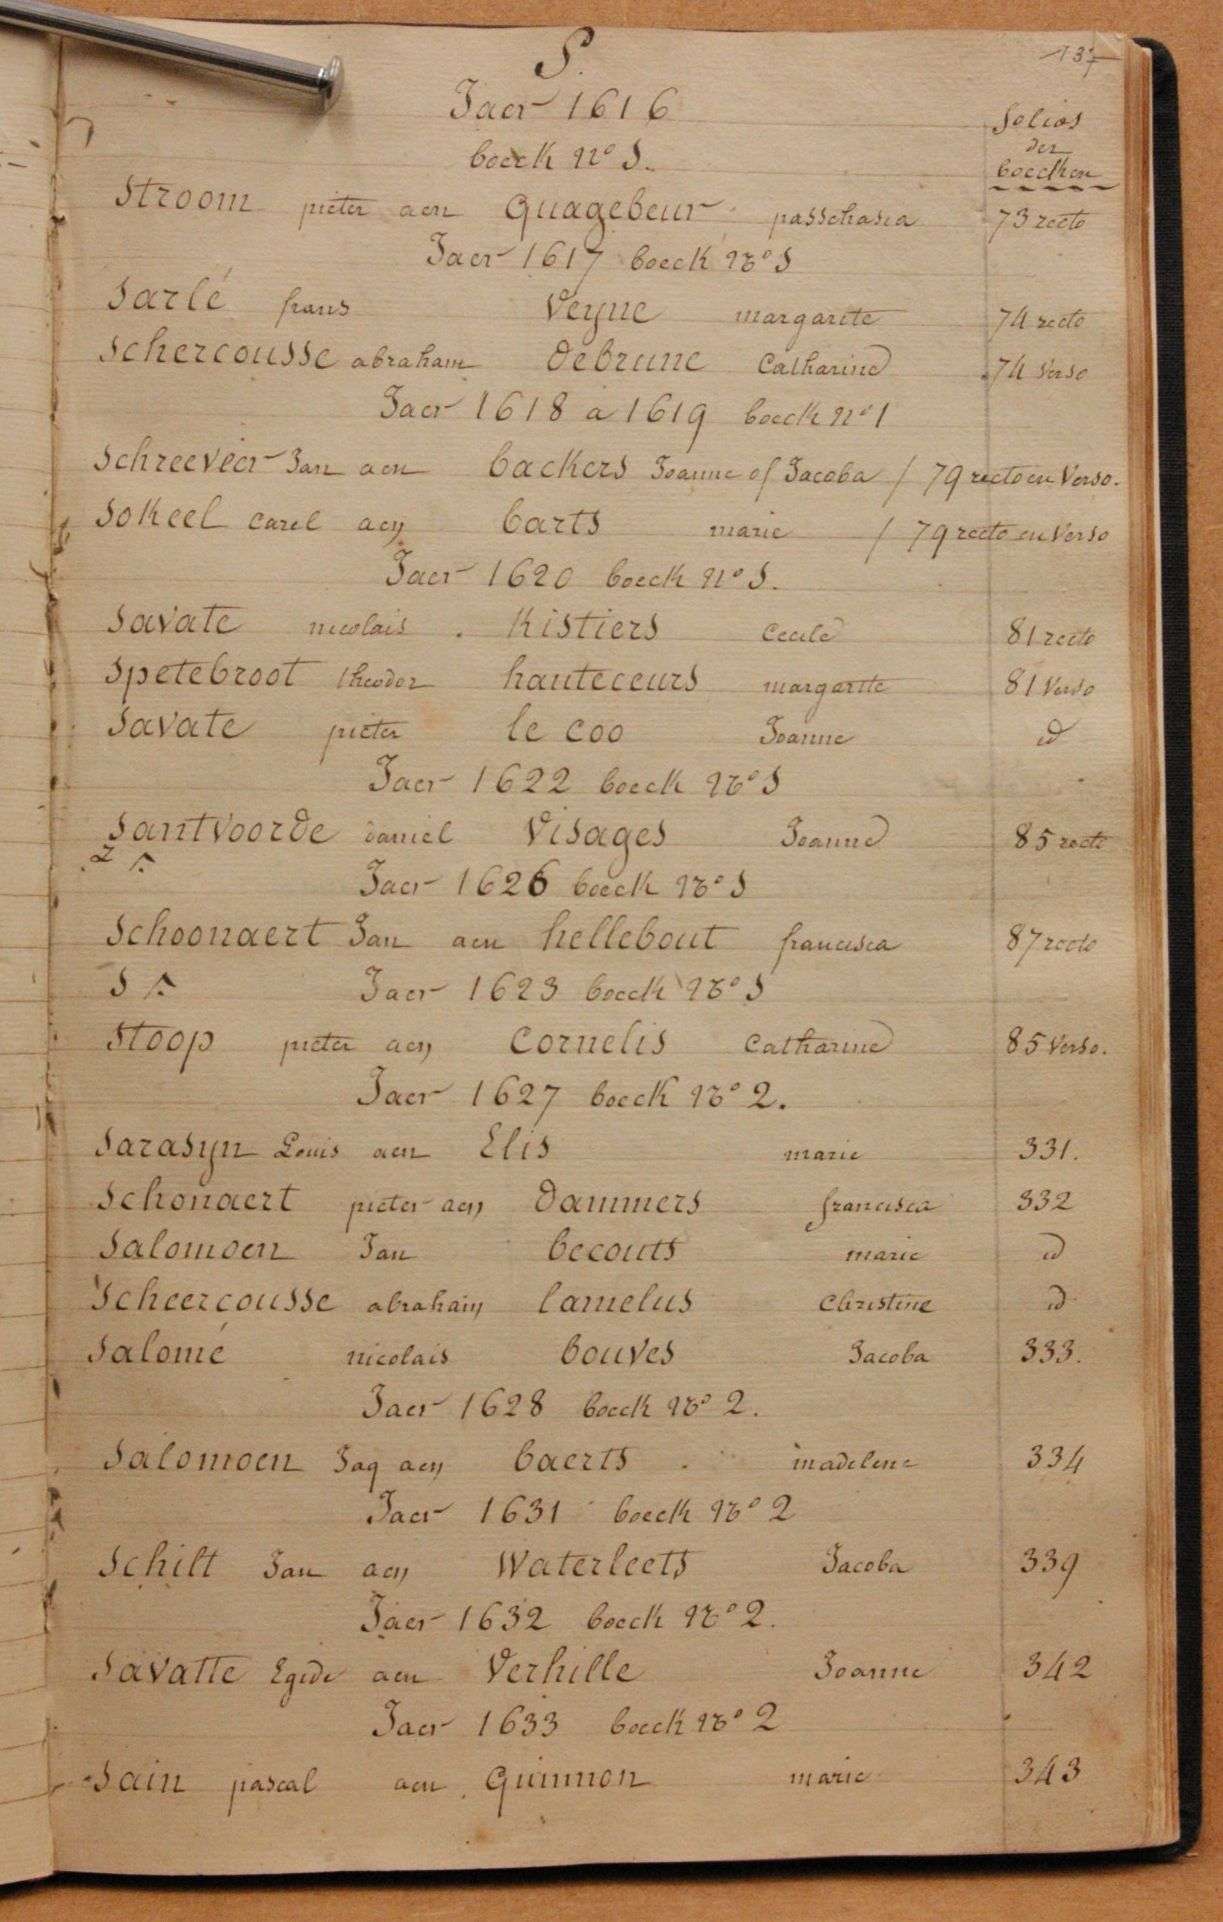 137
S.
Jaer 1616
folios
der
boecken
boeck nº S.
Stroom pieter aen Quagebeur passchasia 73 recto
Jaer 1617 boeck nº S
Sarlé frans Veyne margarite 74 recto
Schercousse abraham Debrune Catharine 74 verso
Jaer 1618 a 1619 boeck nº 1
Schreeveer Jan aen backers Joanne of Jacoba / 79 recto en Verso.
Sokeel Carel aen barts marie / 79 recto en Verso
Jaer 1620 boeck nº S.
Savate nicolais . Kistiers Cecile 81 recto
Spetebroot theodor hauteceurs margarite 81 Verso
Savate pieter le coo Joanne id
Jaer 1622 boeck nº S
Santvoorde daniel Visages Joanne 85 recto
Jaer 1626 boeck nº S
Schoonaert Jan aen hellebout francisca 87 recto
Jaer 1623 boeck nº S
Stoop pieter aen Cornelis Catharine 85 Verso.
Jaer 1627 boeck nº 2.
Sarasyn Louis aen Elis marie 331.
Schonaert pieter aen Dammers francisca 332
Salomoen Jan becouts marie id
Scheercousse abraham lamelus Christine id
Salomé nicolais bouves Jacoba 333.
Jaer 1628 boeck nº 2.
Salomoen Jaq aen baerts madelene 334
Jaer 1631 boeck nº 2
Schilt Jan aen Waterleets Jacoba 339
Jaer 1632 boeck nº 2.
Savatte Egide aen Verhille Joanne 342
Jaer 1633 boeck nº 2
Sain pascal aen Quimmon marie 343